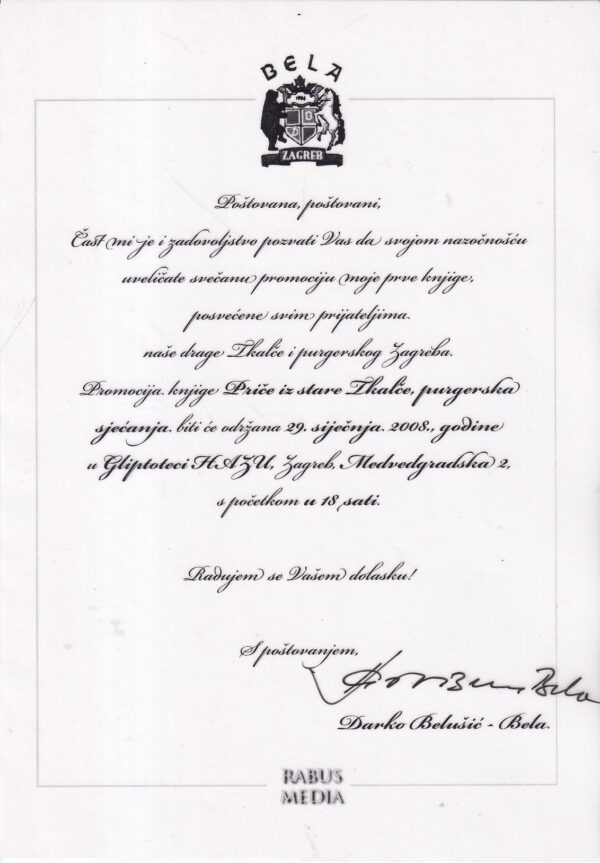 BELA
1994
ZAGREB
Poštovana, poštovani,
Čast mi je i zadovoljstvo pozvati Vas da svojom nazočnošću
uveličate svečanu promociju moje prve knjige,
posvećene svim prijateljima
naše drage Tkalče i purgerskog Zagreba.
Promocija knjige Priče iz stare Tkalče, purgerska
sjećanja biti će održana 29. siječnja 2008., godine
u Gliptoteci HAZU, Zagreb, Medvedgradska 2,
s početkom u 18 sati.
Radujem se Vašem dolasku!
S poštovanjem,
Bela
Darko Belušić - Bela
RABUS
MEDIA